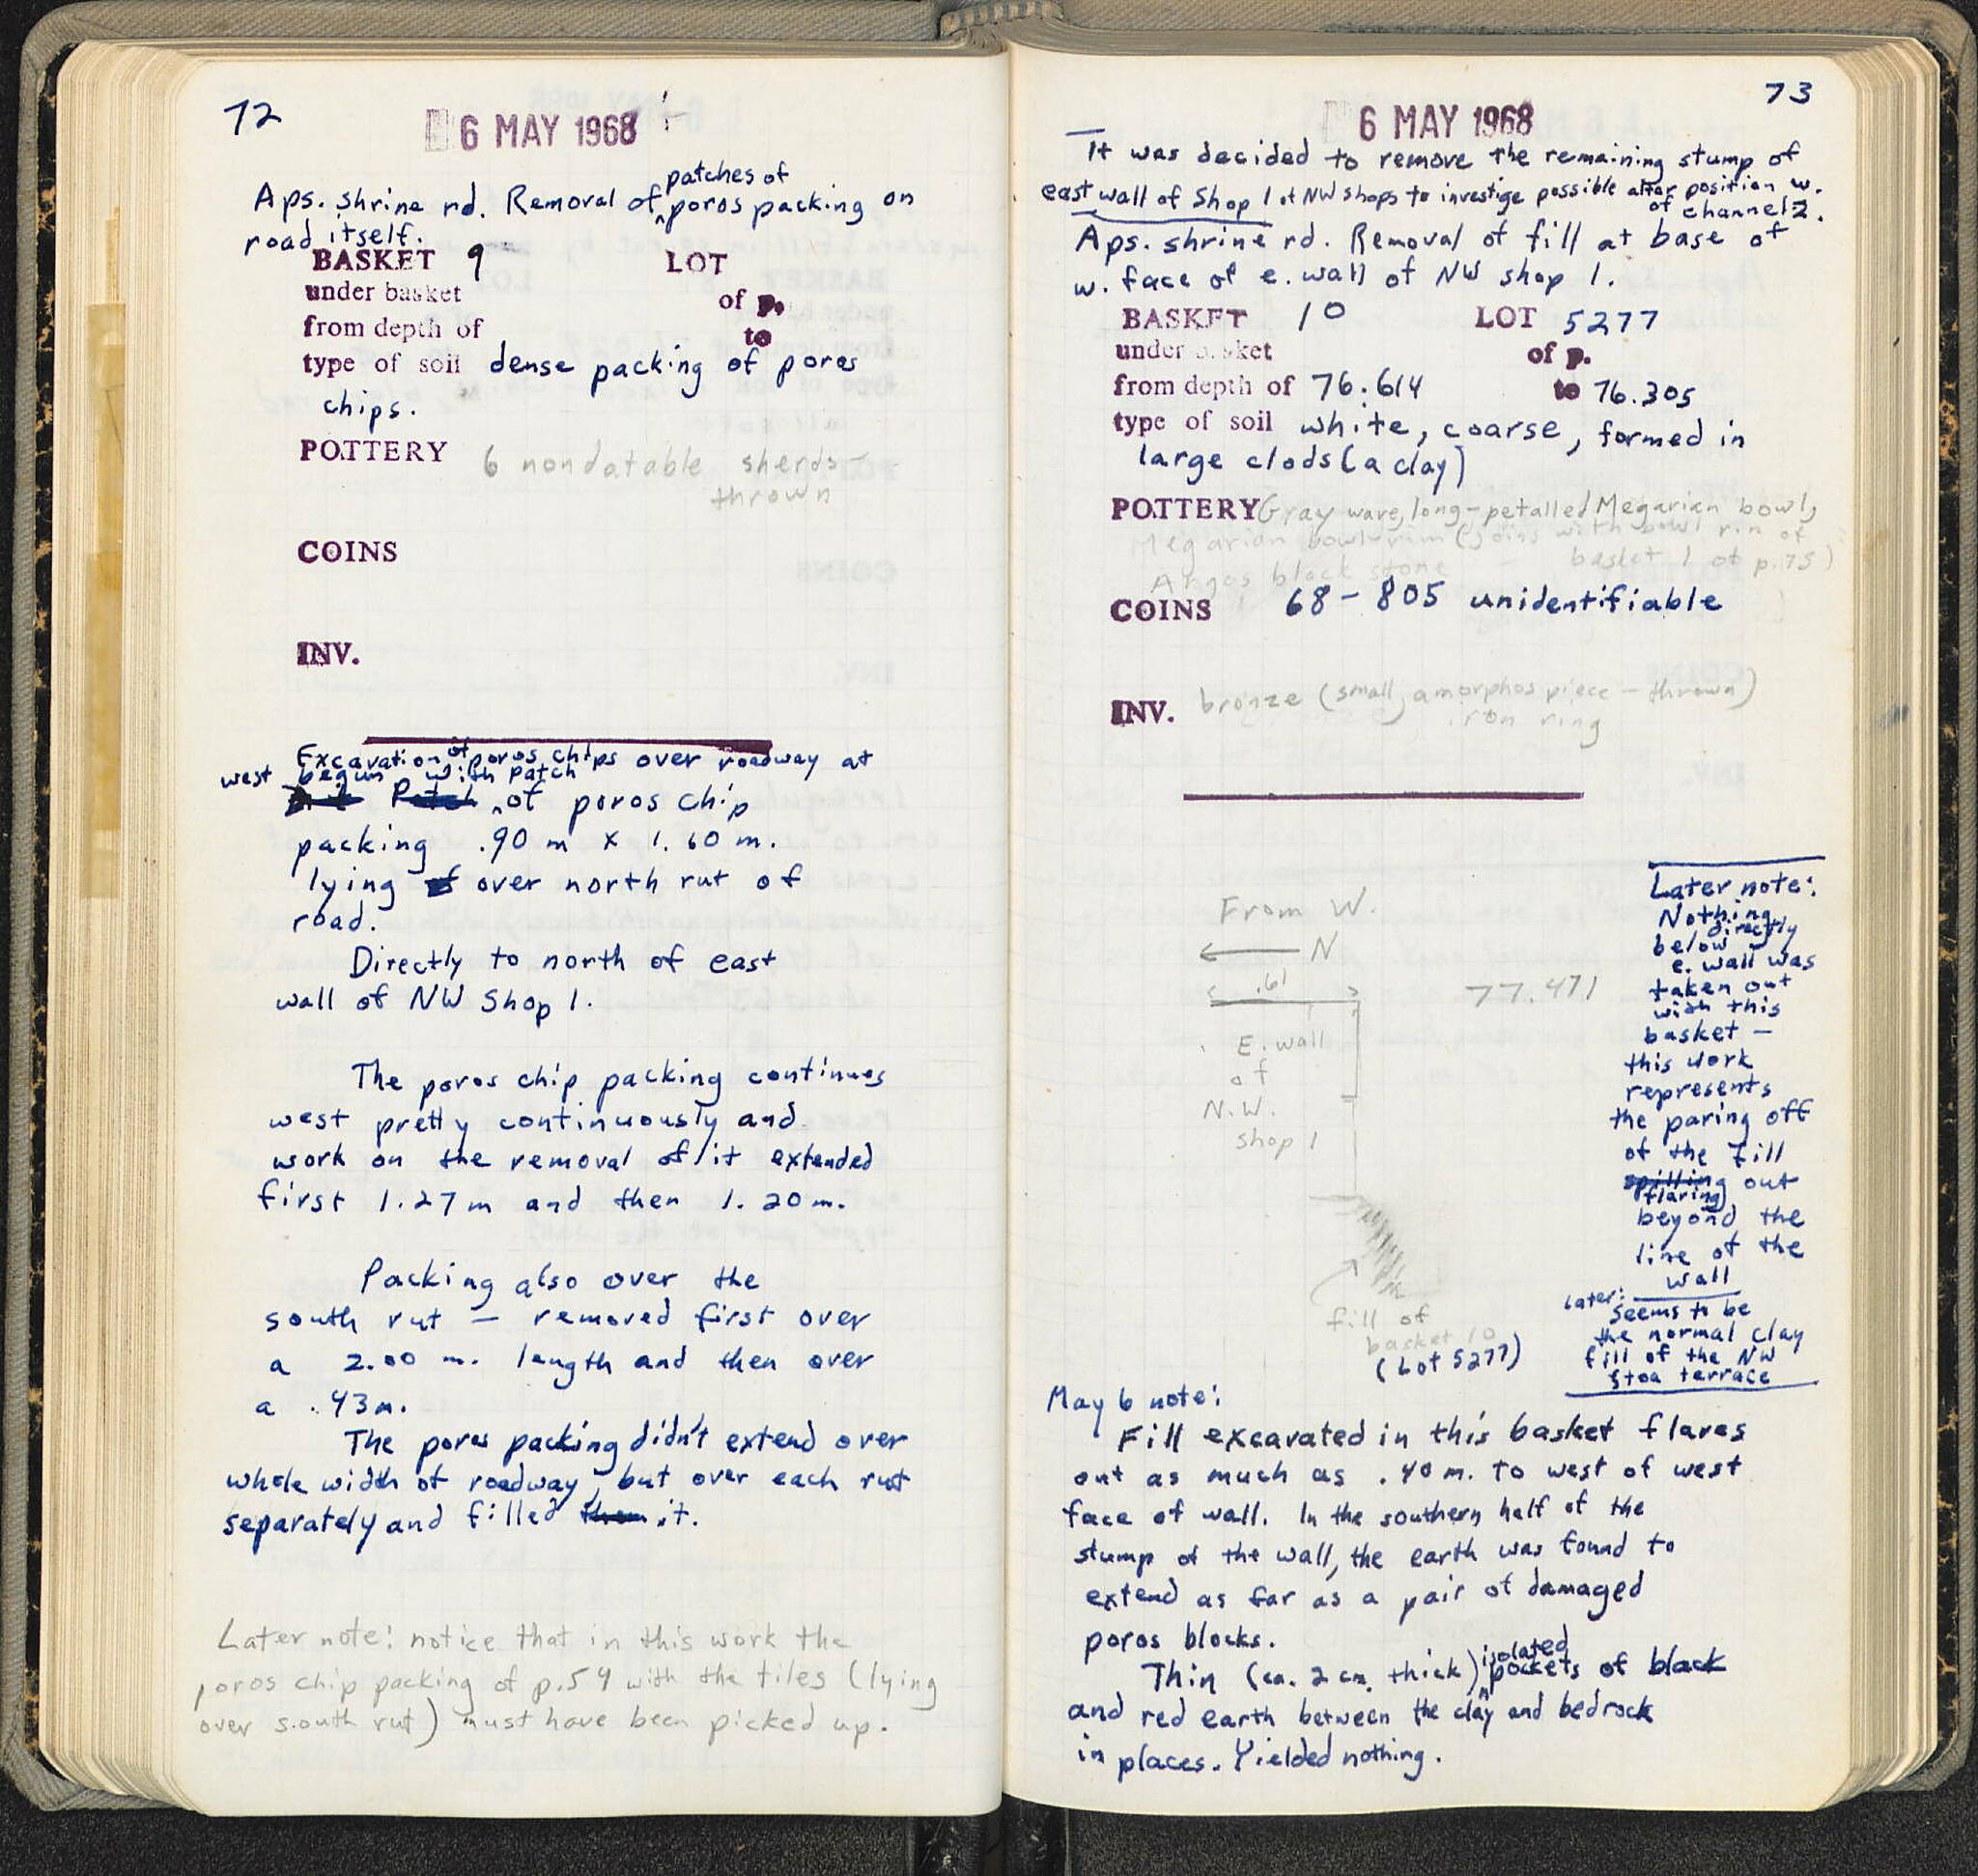 72
6 MAY 1968
patches of
Aps. shrine rd. Removal of poros packing on
road itself.
BASKET 9 LOT
under basket of p.
from depth of to
type of soil dense packing of poros
chips.
POTTERY 6 nondatable sherds -
thrown
COINS
INV.
Excavation of poros chips over roadway at
west begun with patch
of poros chip
packing .90 m x 1.60 m.
lying over north rut of
road.
Directly to north of east
wall of NW Shop 1.
The poros chip packing continues
west pretty continuously and
work on the removal of it extended
first 1.27 m and then 1.20 m.
Packing also over the
south rut — removed first over
a 2.00 m. length and then over
a .43 m.
The poros packing didn't extend over
whole width of roadway, but over each rut
separately and filled them it.
Later note: notice that in this work the
poros chip packing of p.59 with the tiles (lying
over south rut) must have been picked up.
73
6 MAY 1968
It was decided to remove the remaining stump of
east wall of Shop 1 of NW shops to investige possible altar position w.
of channel 2.
Aps. shrine rd. Removal of fill at base of
w. face of e. wall of NW shop 1.
BASKET 10 LOT 5277
under basket of p.
from depth of 76.614 to 76.305
type of soil white, coarse, formed in
large clods (a clay)
POTTERY Gray ware, long-petalled Megarian bowl,
Megarian bowl rim (joins with bowl rim of
Argos black stone - basket 1 of p.75)
COINS 68-805 unidentifiable
INV. bronze (small, amorphos piece - thrown)
iron ring
From W.
← N
.61
77.471
E. wall
of
N.W.
shop 1
fill of
basket 10
(Lot 5277)
Later note:
Nothing
directly
below
e. wall was
taken out
with this
basket —
this work
represents
the paring off
of the fill
spilling out
flaring
beyond the
line of the
wall
Later:
seems to be
the normal clay
fill of the NW
Stoa terrace
May 6 note:
Fill excavated in this basket flares
out as much as .40 m. to west of west
face of wall. In the southern half of the
stump of the wall, the earth was found to
extend as far as a pair of damaged
poros blocks.
isolated
Thin (ca. 2 cm. thick) pockets of black
and red earth between the clay and bedrock
in places. Yielded nothing.